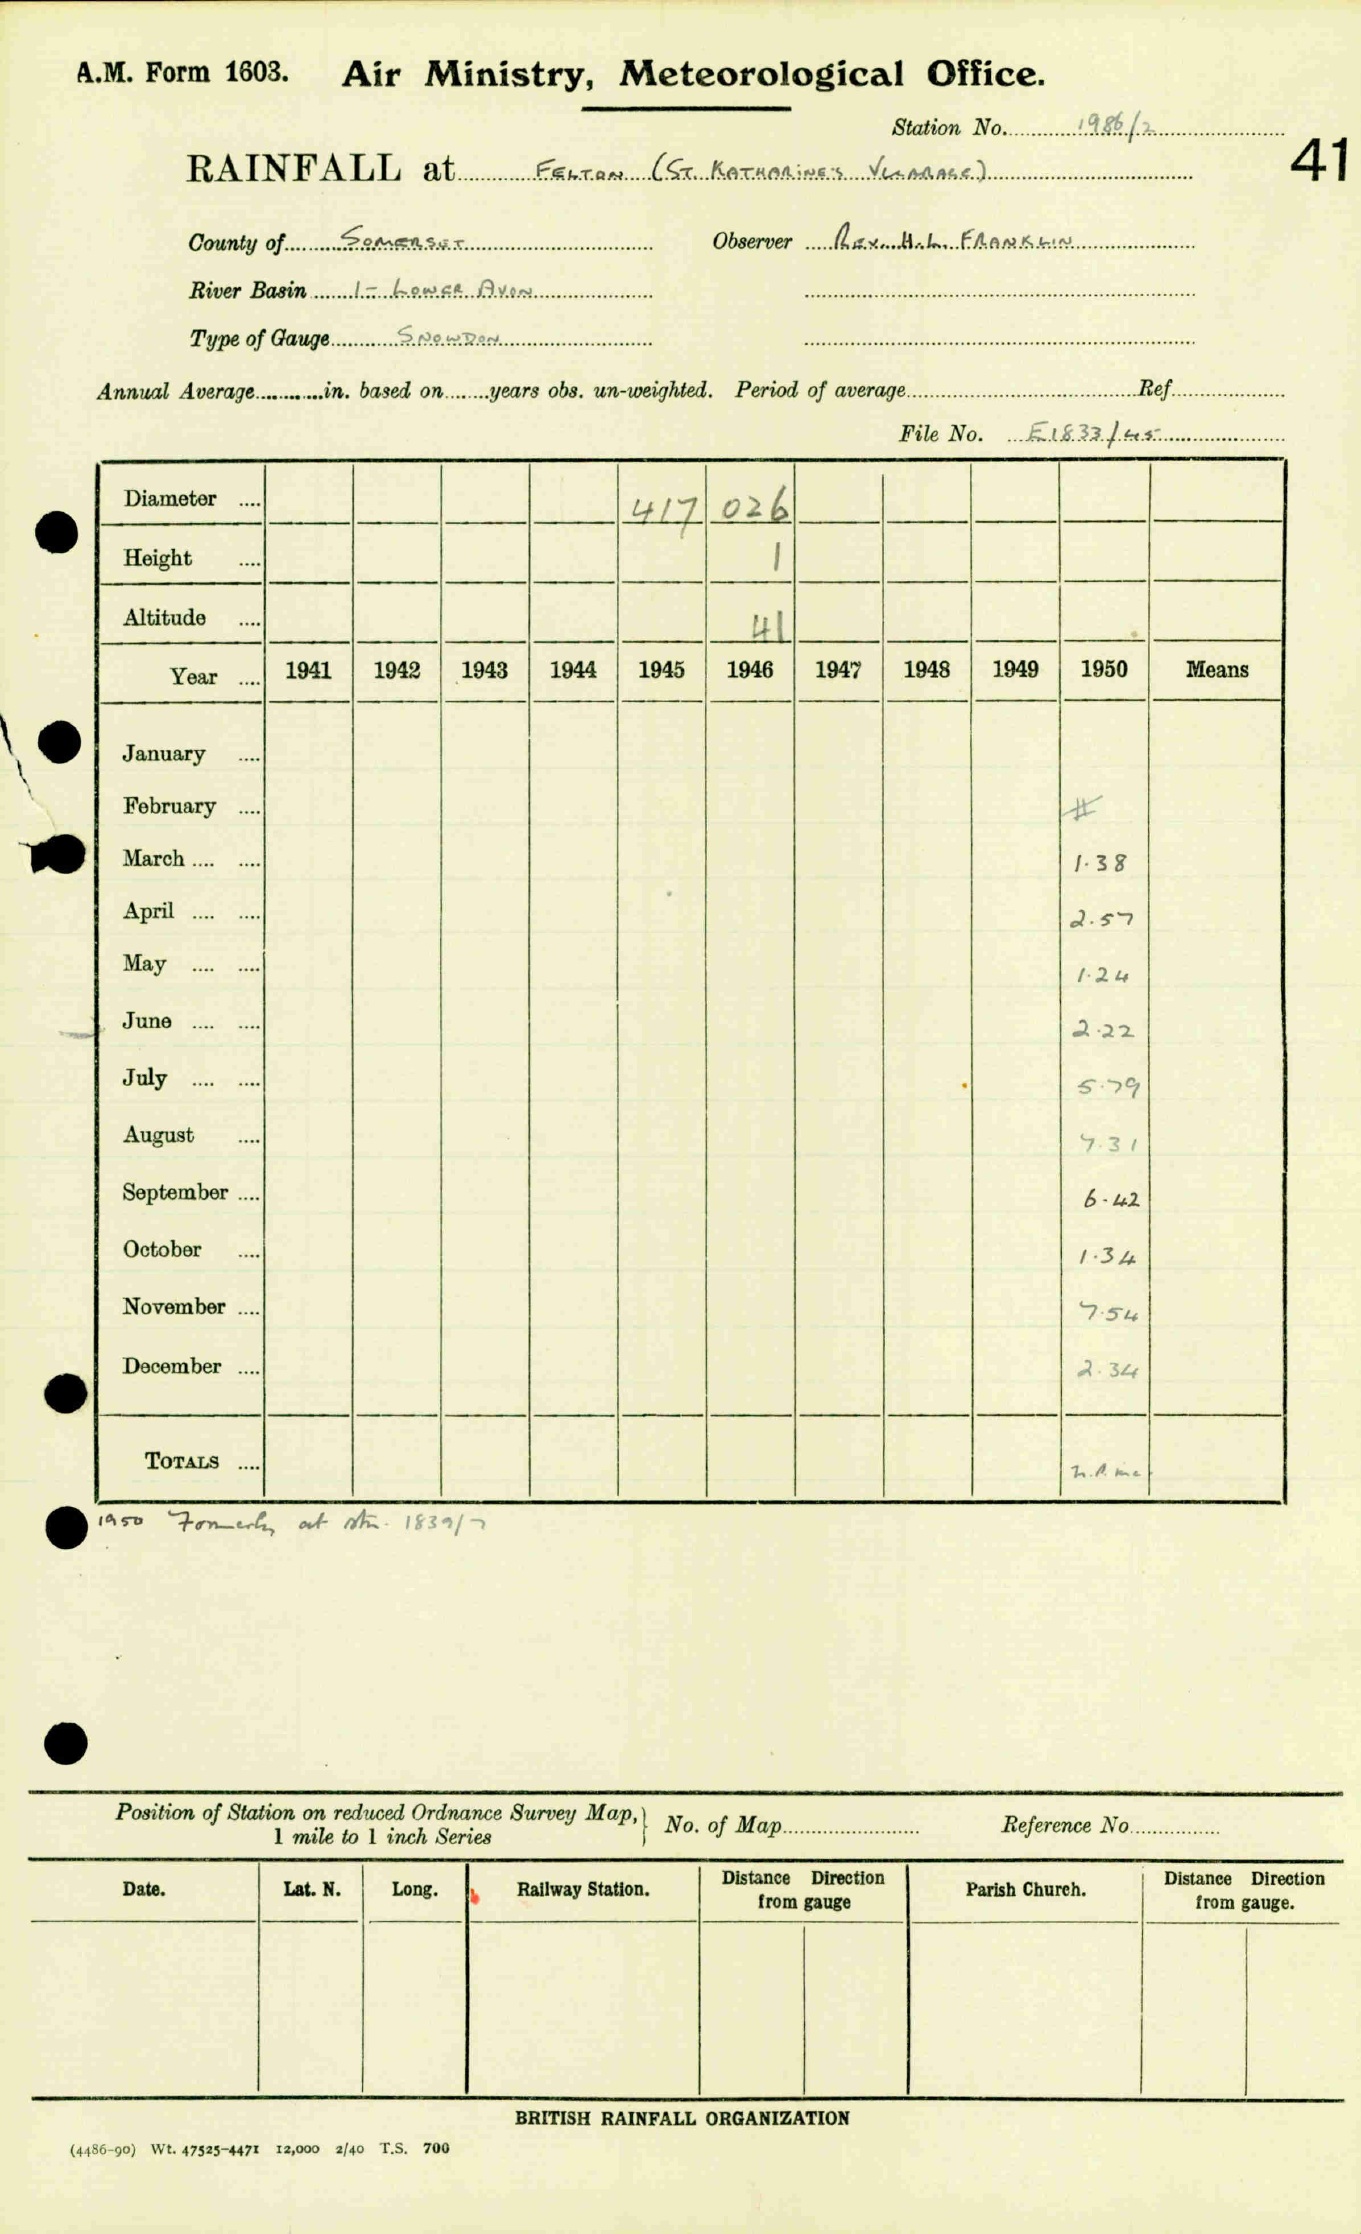 A.M. Form 1603. Air Ministry, Meteorological Office.
Station No. 1986/2
41
RAINFALL at FELTON (ST. KATHARINE'S VICARAGE)
County of SOMERSET Observer REV. H.L. FRANKLIN
River Basin 1- LOWER AVON
Type of Gauge SNOWDON
Annual Average in. based on years obs. un-weighted. Period of average Ref.
File No. E1833/45
Diameter 417 026
Height 1
Altitude 41
Year 1941 1942 1943 1944 1945 1946 1947 1948 1949 1950 Means
January
February #
March 1.38
April 2.57
May 1.24
June 2.22
July 5.79
August 7.31
September 6.42
October 1.34
November 7.54
December 2.34
TOTALS
1950 Formerly at stn. 1839/7
Position of Station on reduced Ordnance Survey Map,
1 mile to 1 inch Series
No. of Map Reference No
Date. Lat. N. Long. Railway Station. Distance Direction from gauge Parish Church. Distance Direction from gauge.
BRITISH RAINFALL ORGANIZATION
(4486-90) Wt. 47525-4471 12,000 2/40 T.S. 700